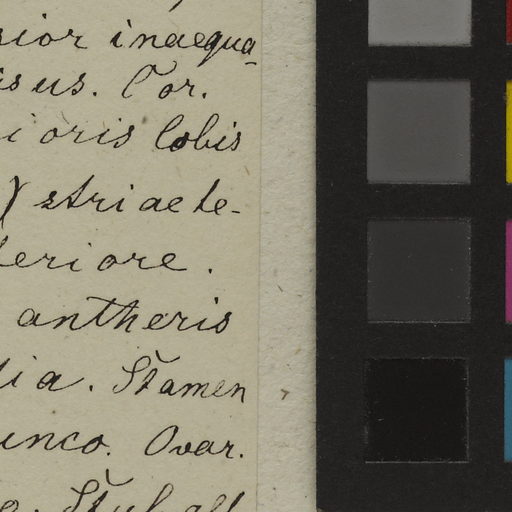 sior inaequa-
sus. Cor.
ioris lobis
) striaete-
teriore.
antheris
dia. Stamen
unco. Ovar.